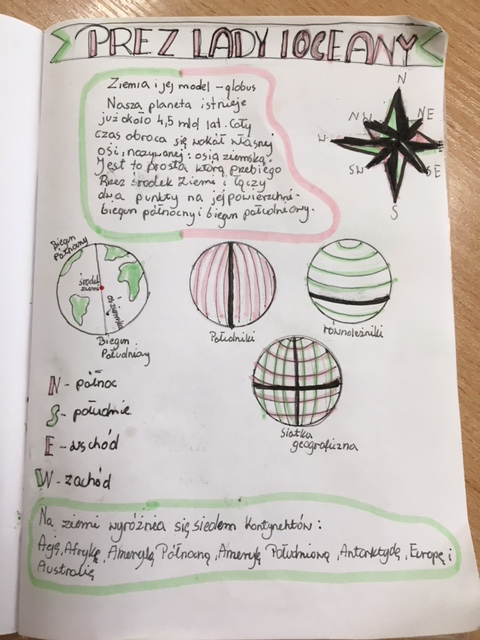 PREZ LADY I OCEANY
Ziemia i jej model - globus
Nasza planeta istnieje
już około 4,5 mld lat. Cały
czas obraca się wokół własnej
osi, nazywanej: osią ziemską.
Jest to prosta którą przebiego
Przez środek Ziemi i łączy
dwa punkty na jej powierzchni-
biegun północny i biegun południowy.
N
NW
NE
W
E
SW
SE
S
Biegun
Północny
środek
ziemi
oś ziemska
Biegun
Południowy
Południki
równoleżniki
siatka
geograficzna
N - północ
S - południe
E - wschód
W - zachód
Na ziemi wyróżnia się siedem kontynentów:
Azję, Afrykę, Amerykę Północną, Amerykę Południową, Antarktydę, Europę i
Australię